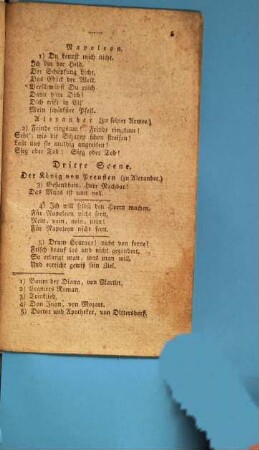 Napoleon.
1) Du kennst mich nicht.
Ich bin der Held,
Der Schöpfung Licht,
Das der Welt.
Verschwörst Du mich
Dann Dich!
Dich trifft in Eil'
Mein schärfster Pfeil.
Alexander (zu seiner Armee.)
2) Feinde ringsum! Feinde ringsum!
Seht! wie die Schaaren schon streifen!
Laßt uns sie muthig angreifen!
Sieg oder Tod! Sieg oder Tod!
Dritte Scene.
Der König von Preußen (zu Alexander.)
3) Gesundheit, Herr Nachbar!
Das Maas ist nun voll.
4) Ich will selbst den Herrn machen,
Für Napoleon nicht seyn,
Nein, nein, nein, nein!
Für Napoleon nicht seyn.
5) Drum Courage! nicht von ferne!
Frisch drauf los und nicht gezittert,
So erlangt man, was man will,
Und erreicht gewiß sein Ziel.
1) Baum der Diana, von Martin,
2) Cramers Roman.
3) Trinklied,
4) Don Juan, von Mozart.
5) Doctor und Apotheker, von Dittersdorf.